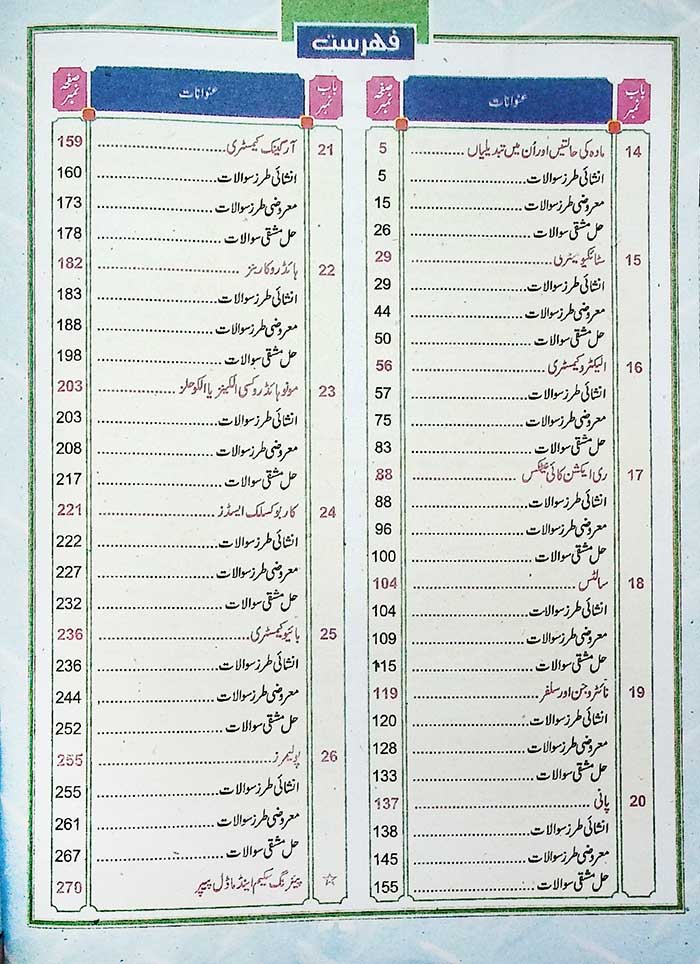 فہرست
باب نمبر عنوانات صفحہ نمبر
14 مادہ کی حالتیں اور اُن میں تبدیلیاں ............ 5
انشائی طرز سوالات ............ 5
معروضی طرز سوالات ............ 15
حل مشقی سوالات ............ 26
15 سٹائکیومیٹری ............ 29
انشائی طرز سوالات ............ 29
معروضی طرز سوالات ............ 44
حل مشقی سوالات ............ 50
16 الیکٹروکیمسٹری ............ 56
انشائی طرز سوالات ............ 57
معروضی طرز سوالات ............ 75
حل مشقی سوالات ............ 83
17 ری ایکشن کائی نیٹکس ............ 88
انشائی طرز سوالات ............ 88
معروضی طرز سوالات ............ 96
حل مشقی سوالات ............ 100
18 سالٹس ............ 104
انشائی طرز سوالات ............ 104
معروضی طرز سوالات ............ 109
حل مشقی سوالات ............ 115
19 نائٹروجن اور سلفر ............ 119
انشائی طرز سوالات ............ 120
معروضی طرز سوالات ............ 128
حل مشقی سوالات ............ 133
20 پانی ............ 137
انشائی طرز سوالات ............ 138
معروضی طرز سوالات ............ 145
حل مشقی سوالات ............ 155
باب نمبر عنوانات صفحہ نمبر
21 آرگینک کیمسٹری ............ 159
انشائی طرز سوالات ............ 160
معروضی طرز سوالات ............ 173
حل مشقی سوالات ............ 178
22 ہائڈروکاربنز ............ 182
انشائی طرز سوالات ............ 183
معروضی طرز سوالات ............ 188
حل مشقی سوالات ............ 198
23 مونوہائڈروکسی الکینز یا الکوحلز ............ 203
انشائی طرز سوالات ............ 203
معروضی طرز سوالات ............ 208
حل مشقی سوالات ............ 217
24 کاربوکسلک ایسڈز ............ 221
انشائی طرز سوالات ............ 222
معروضی طرز سوالات ............ 227
حل مشقی سوالات ............ 232
25 بائیوکیمسٹری ............ 236
انشائی طرز سوالات ............ 236
معروضی طرز سوالات ............ 244
حل مشقی سوالات ............ 252
26 پولیمرز ............ 255
انشائی طرز سوالات ............ 255
معروضی طرز سوالات ............ 261
حل مشقی سوالات ............ 267
☆ پیئرنگ سکیم اینڈ ماڈل پیپر 270